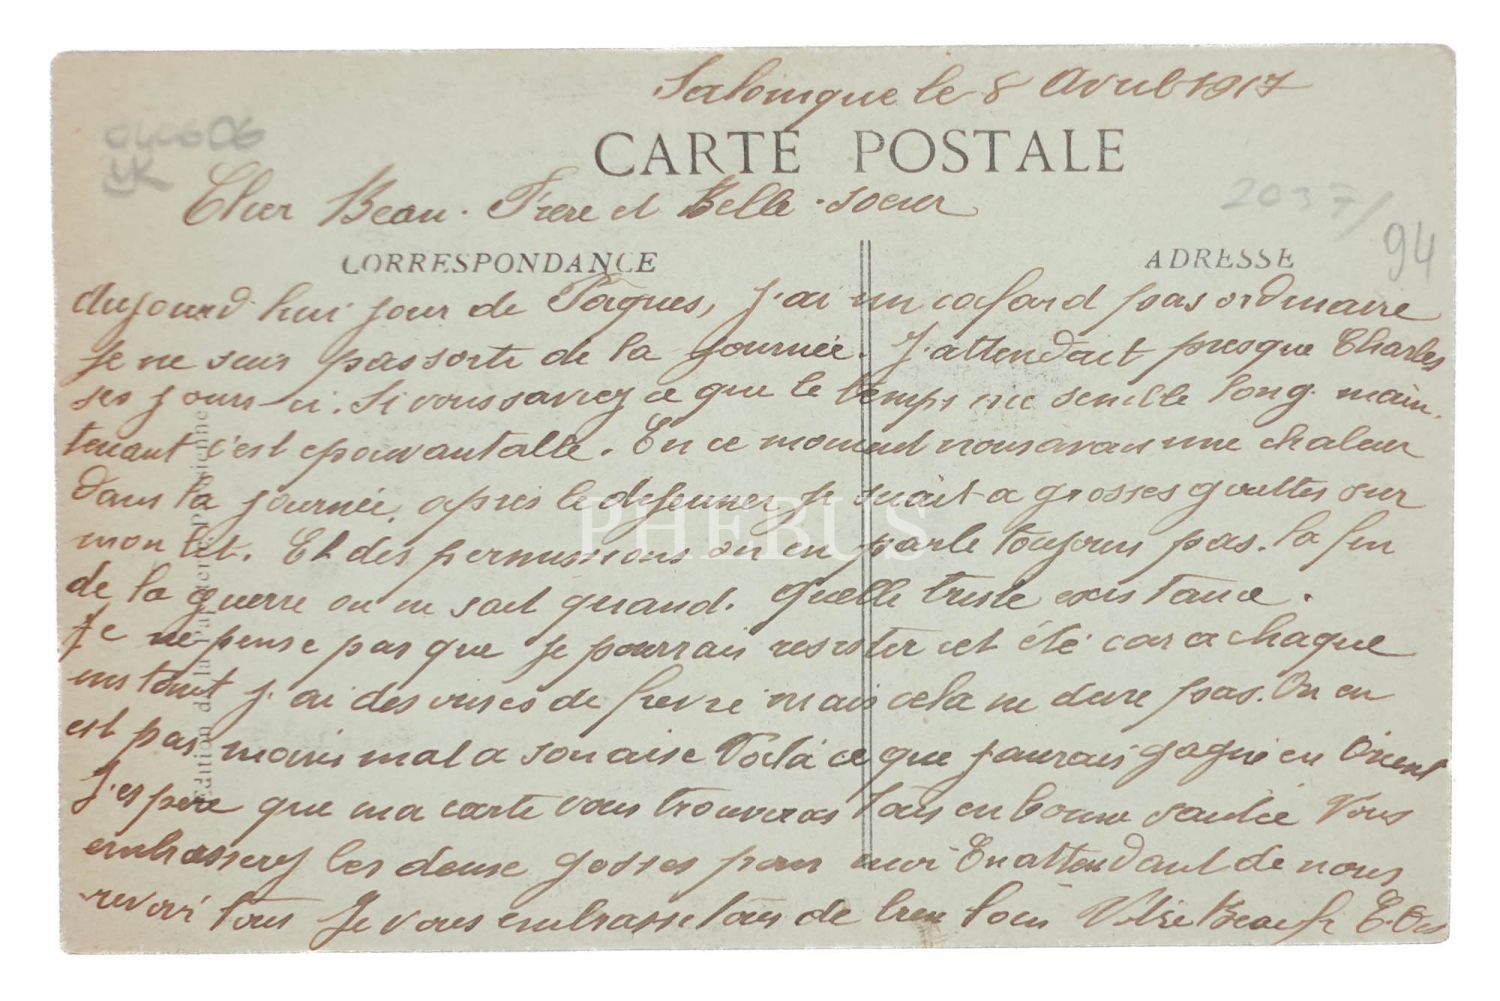 Salonique le 8 Avril 1917
CARTE POSTALE
Cher Beau-Frere et Belle-soeur
2037/94
CORRESPONDANCE
ADRESSE
Aujourd'hui jour de Paques, j'ai un cafard pas ordinaire
Je ne suis pas sorti de la journée. J'attendait presque Charles
ses jours-ci. Si vous saviez ce que le temps me semble long. main-
tenant c'est epouvantable. En ce moment nous avons une chaleur
dans la journée, après le dejeuner je suait a grosses gouttes sur
mon lit. Et des permissions on en parle toujours pas. la fin
de la guerre on ne sait quand. Quelle triste existance.
Je ne pense pas que je pourrais resister cet été car a chaque
instant j'ai des crises de fievre mais cela ne dure pas. On en
est pas moins mal a son aise Voilà ce que j'aurais gagné en Orient
J'espere que ma carte vous trouveras tous en bonne santée Vous
embrasserez les deux gosses pour moi En attendant de nous
revoir tous Je vous embrasse tous de bien loin Votre Beau fr
PHEBUS
Edition de la Parienne